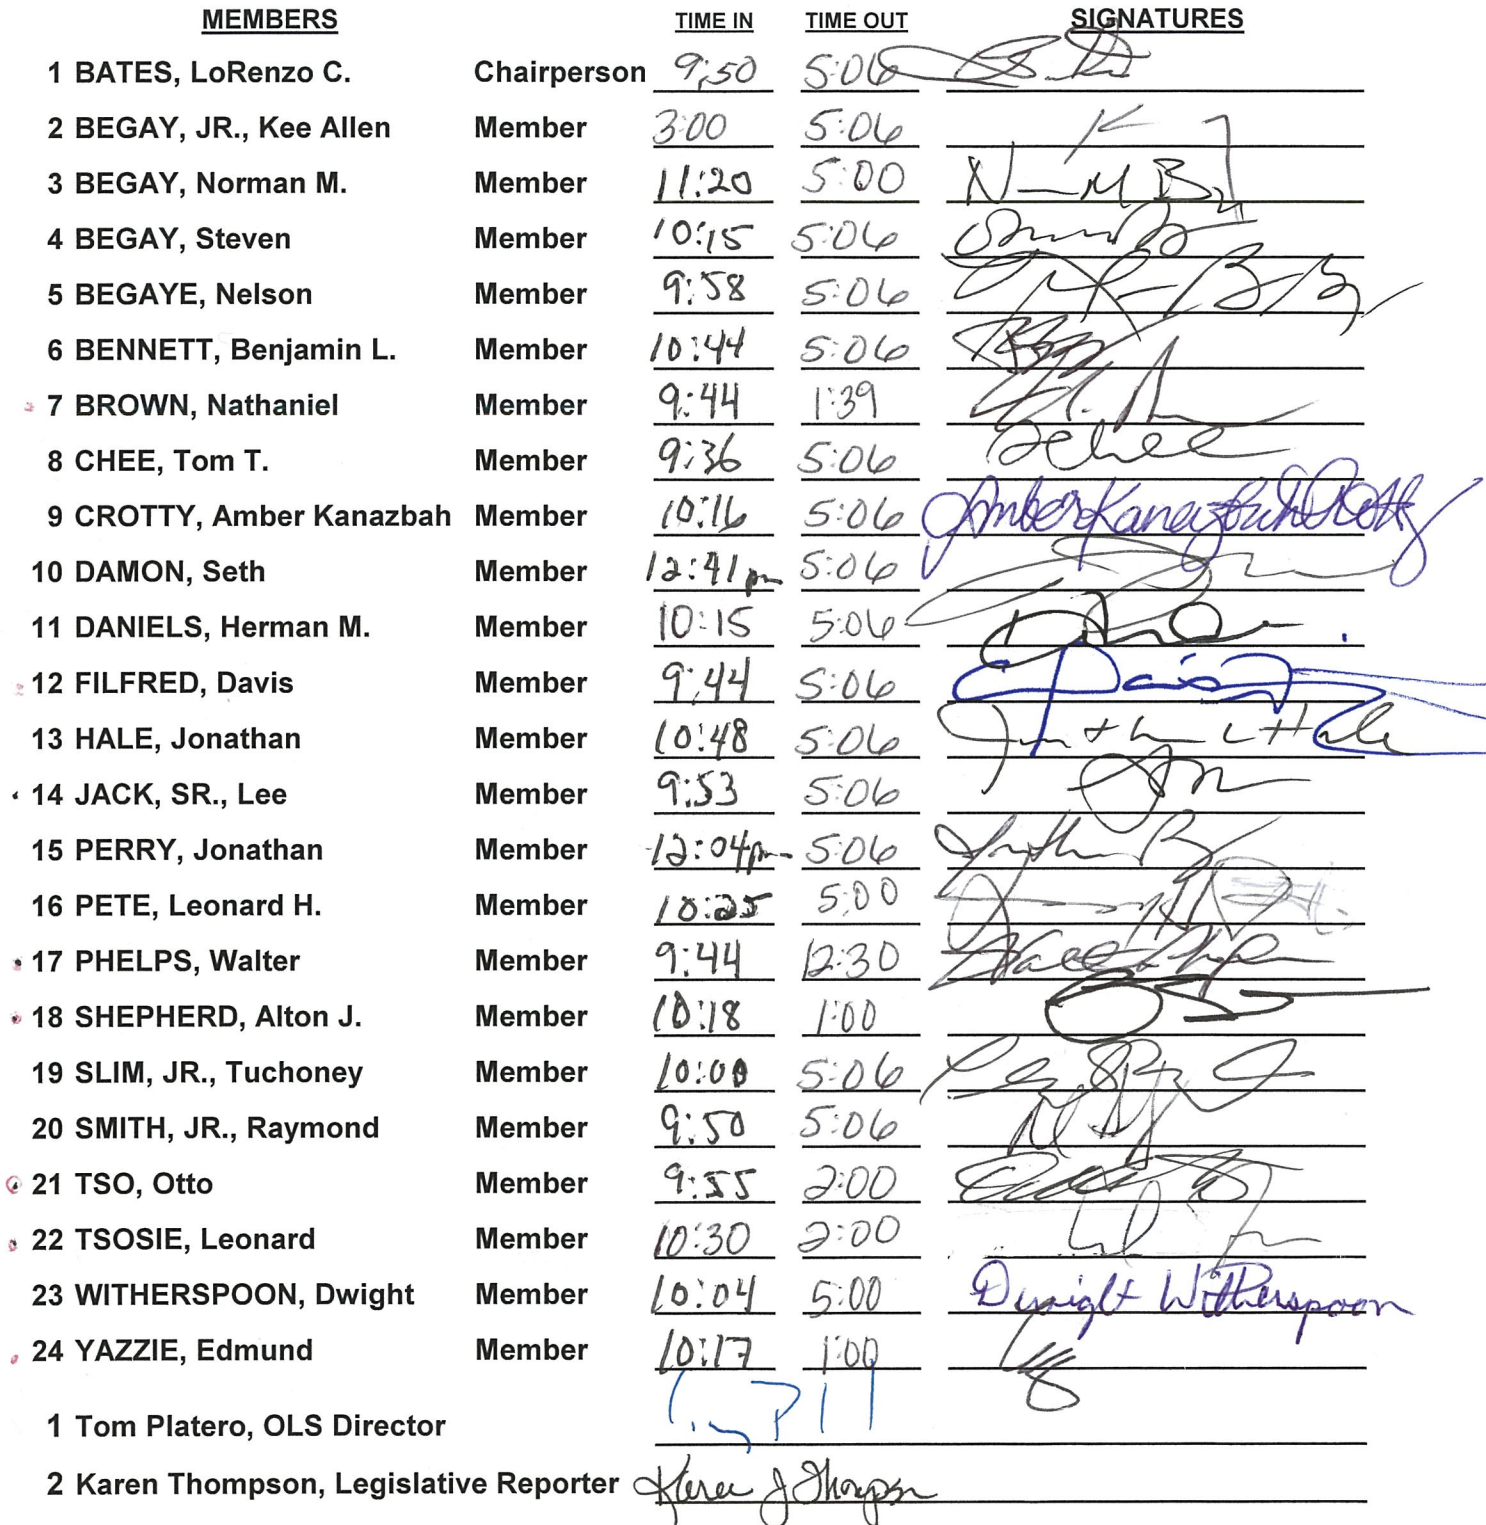 MEMBERS TIME IN TIME OUT SIGNATURES
1 BATES, LoRenzo C. Chairperson 9:50 5:06
2 BEGAY, JR., Kee Allen Member 3:00 5:06
3 BEGAY, Norman M. Member 11:20 5:00
4 BEGAY, Steven Member 10:15 5:06
5 BEGAYE, Nelson Member 9:58 5:06
6 BENNETT, Benjamin L. Member 10:44 5:06
7 BROWN, Nathaniel Member 9:44 1:39
8 CHEE, Tom T. Member 9:36 5:06
9 CROTTY, Amber Kanazbah Member 10:16 5:06 Amber Kanazbah Crotty
10 DAMON, Seth Member 12:41pm 5:06
11 DANIELS, Herman M. Member 10:15 5:06
12 FILFRED, Davis Member 9:44 5:06 Davis
13 HALE, Jonathan Member 10:48 5:06 Jonathan L Hale
14 JACK, SR., Lee Member 9:53 5:06
15 PERRY, Jonathan Member 12:04pm 5:06
16 PETE, Leonard H. Member 10:25 5:00
17 PHELPS, Walter Member 9:44 12:30
18 SHEPHERD, Alton J. Member 10:18 1:00
19 SLIM, JR., Tuchoney Member 10:00 5:06
20 SMITH, JR., Raymond Member 9:50 5:06
21 TSO, Otto Member 9:55 2:00
22 TSOSIE, Leonard Member 10:30 2:00
23 WITHERSPOON, Dwight Member 10:04 5:00 Dwight Witherspoon
24 YAZZIE, Edmund Member 10:17 1:00
1 Tom Platero, OLS Director
2 Karen Thompson, Legislative Reporter Karen J Thompson